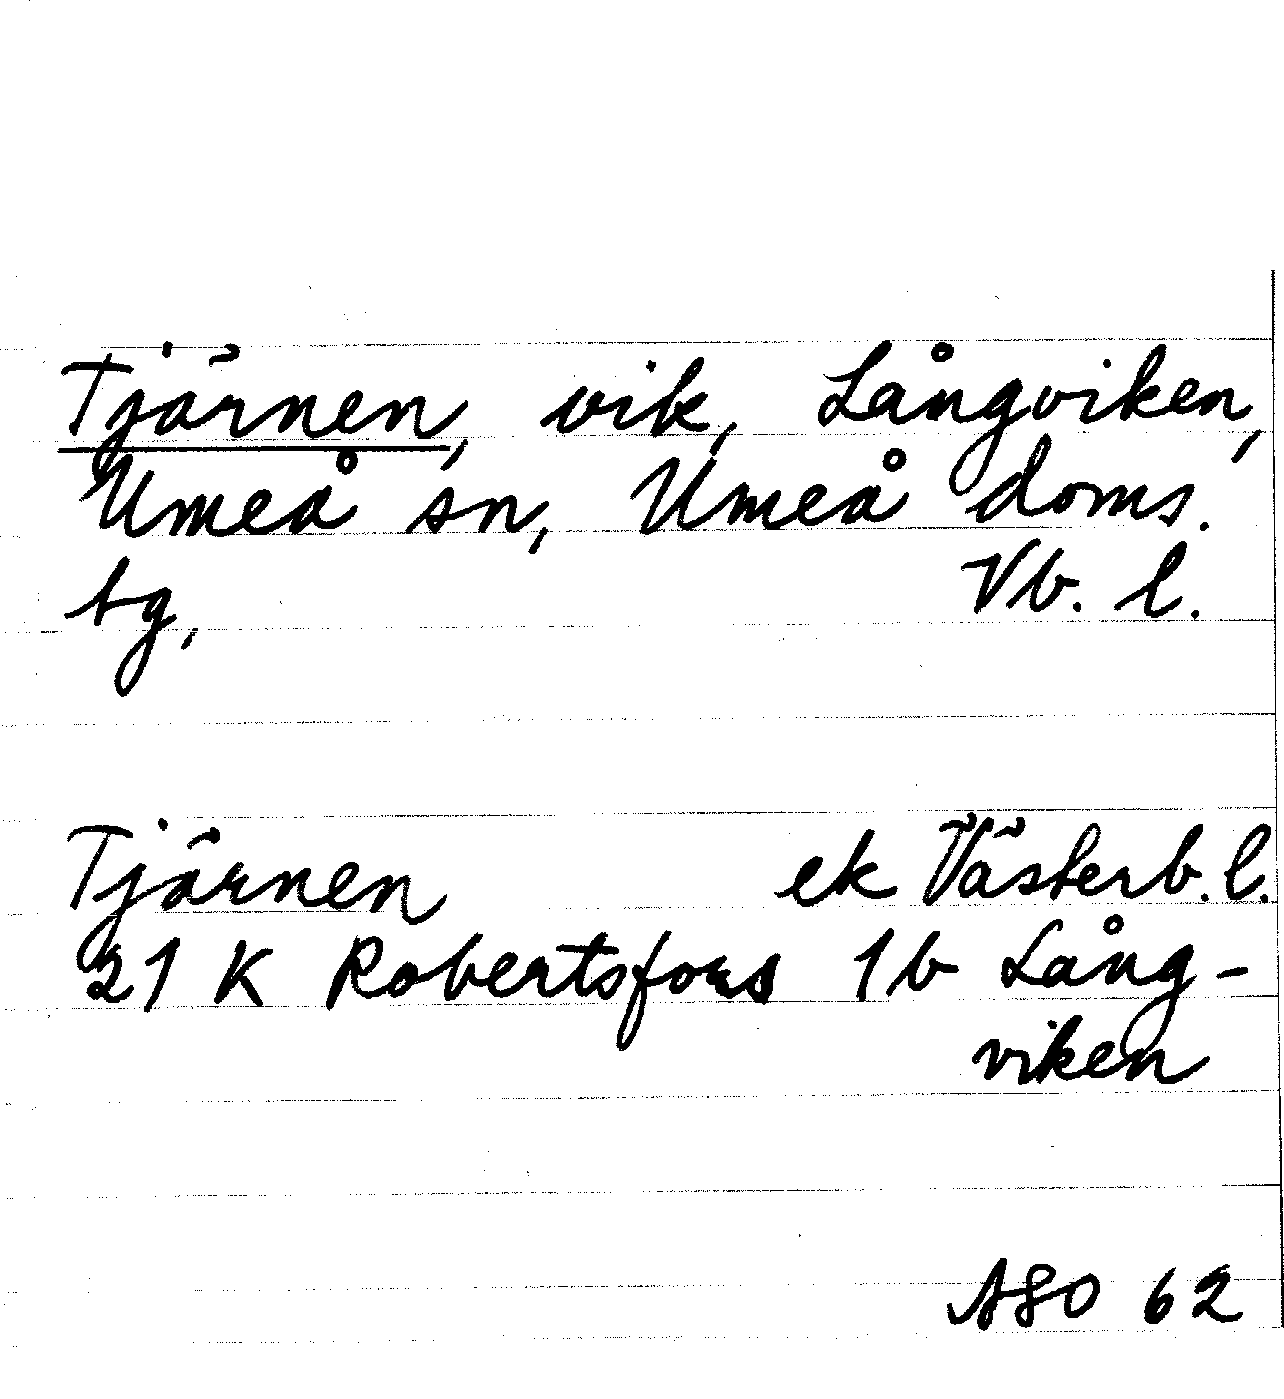 Tjärnen, vik, Långviken,
Umeå sn, Umeå doms.
tg, Vb. l.
Tjärnen ek Västerb. l.
21 K Robertsfors 1b Lång-
viken
ASO 62